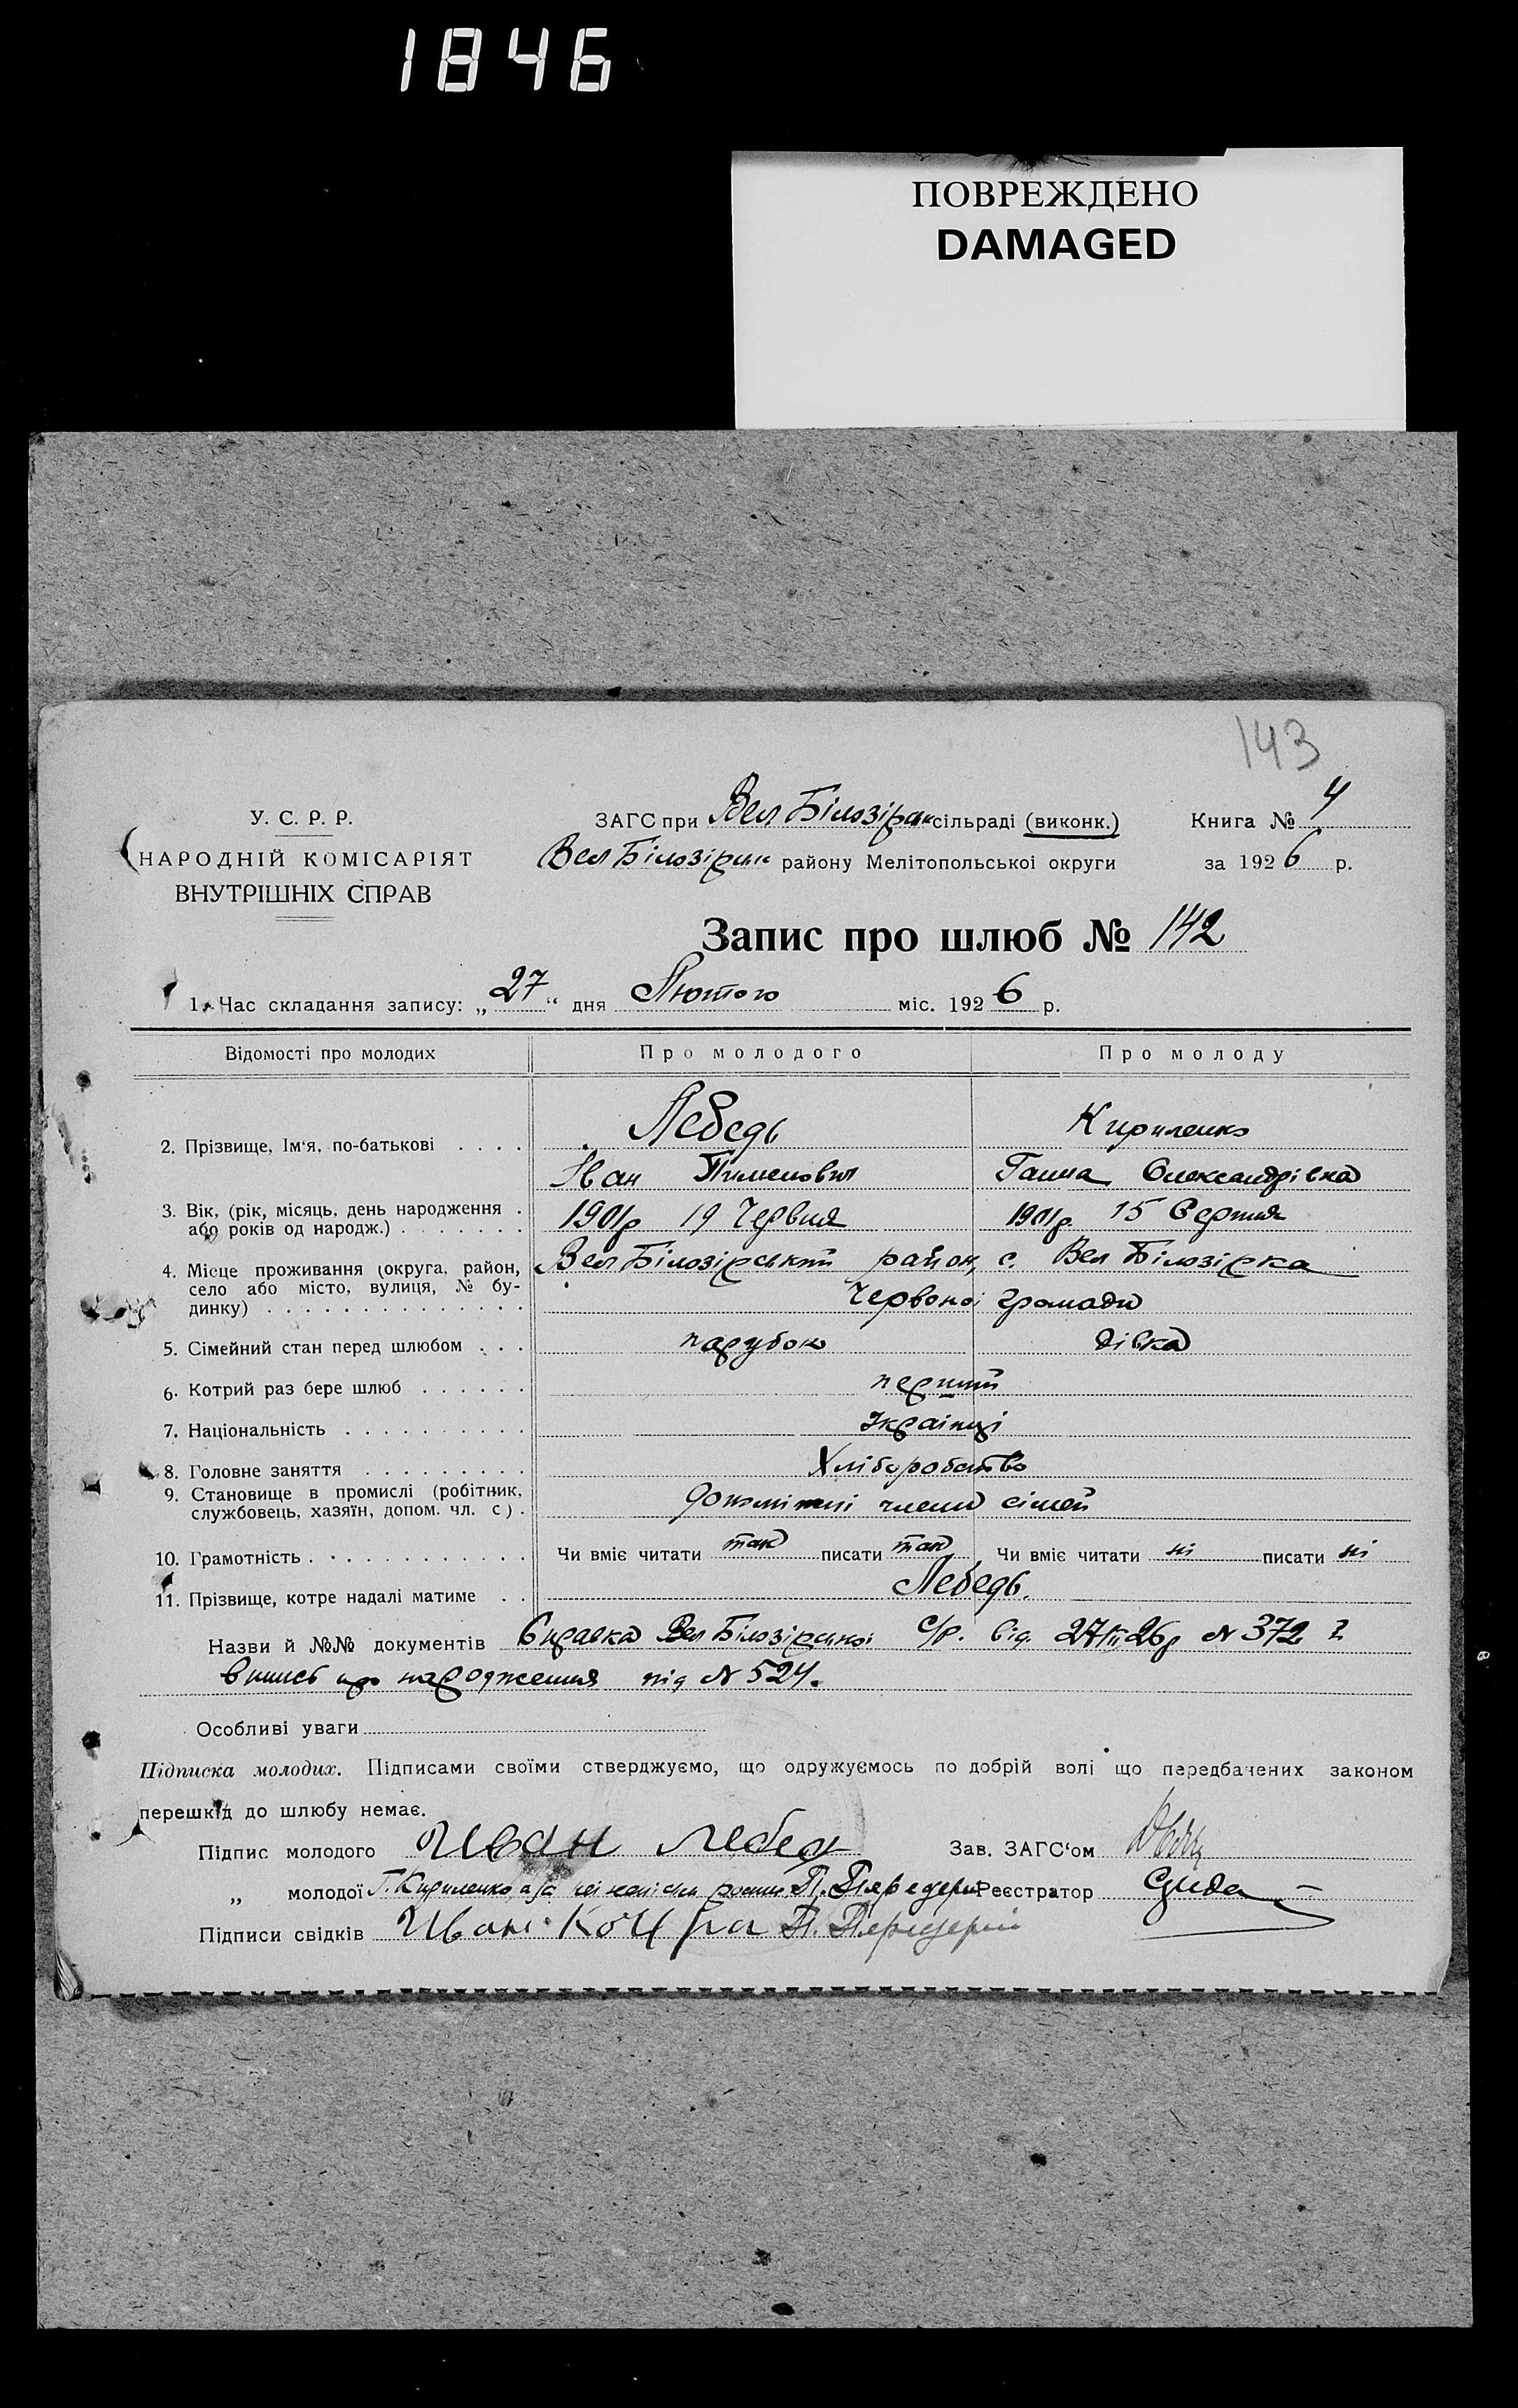 1846
ПОВРЕЖДЕНО
DAMAGED
143
У. С. Р. Р.
НАРОДНІЙ КОМІСАРІЯТ
ВНУТРІШНІХ СПРАВ
ЗАГС при Вел Білозірськ сільраді (виконк.)
Вел Білозірськ району Мелітопольської округи
Книга № 4
за 1926 р.
Запис про шлюб № 142
1. Час складання запису: „27“ дня Лютого міс. 1926 р.
Відомості про молодих Про молодого Про молоду
2. Прізвище, Ім'я, по-батькові . . . . Лебедь Кириленко
Іван Пименович Ганна Олександрівна
3. Вік, (рік, місяць, день народження .
або років од народж.) . . . . . . . 1901р 19 Червня 1901р. 15 Серпня
4. Місце проживання (округа, район,
село або місто, вулиця, № бу-
динку) . . . . . . . . . . . . . .
Вел Білозірський район, с. Вел Білозірка
Червоної громади
5. Сімейний стан перед шлюбом . . . парубок дівка
6. Котрий раз бере шлюб . . . . . . перший
7. Національність . . . . . . . . . . Українці
8. Головне заняття . . . . . . . . . Хліборобство
9. Становище в промислі (робітник,
службовець, хазяїн, допом. чл. с) . допоміжні члени сімей
10. Грамотність . . . . . . . . . . . . Чи вміє читати так писати так Чи вміє читати ні писати ні
11. Прізвище, котре надалі матиме . . Лебедь.
Назви й №№ документів Справка Вел Білозірської с/р. від 27/II 26р N 372
про народження під N 524.
Особливі уваги
Підписка молодих. Підписами своїми стверджуємо, що одружуємось по добрій волі що передбачених законом
перешкід до шлюбу немає.
Підпис молодого Иван Лебедь
Зав. ЗАГС'ом
„ молодої Г. Кириленко а за П. Передерій
Реєстратор
Підписи свідків Иван П. Передерій